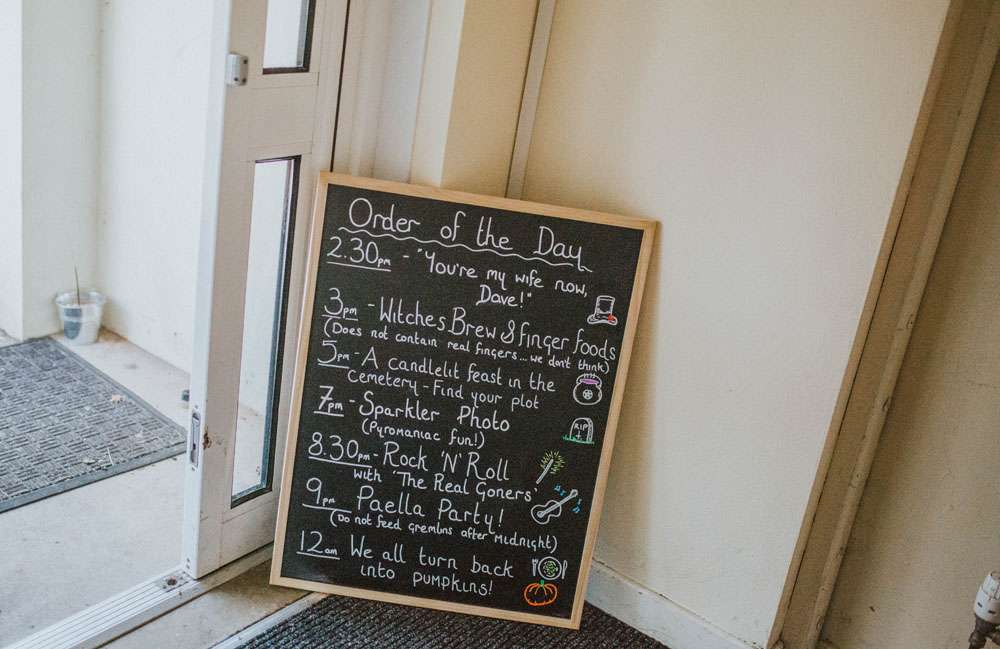 Order of the Day
2.30pm - "You're my wife now,
Dave!"
3pm - Witches Brew & finger foods
(Does not contain real fingers... we don't think)
5pm - A candlelit feast in the
Cemetery - Find your plot
7pm - Sparkler Photo
(Pyromaniac fun!)
8.30pm - Rock 'N' Roll
with 'The Real Goners'
9pm Paella Party!
(Do not feed gremlins after midnight)
12am We all turn back
into pumpkins!
RIP